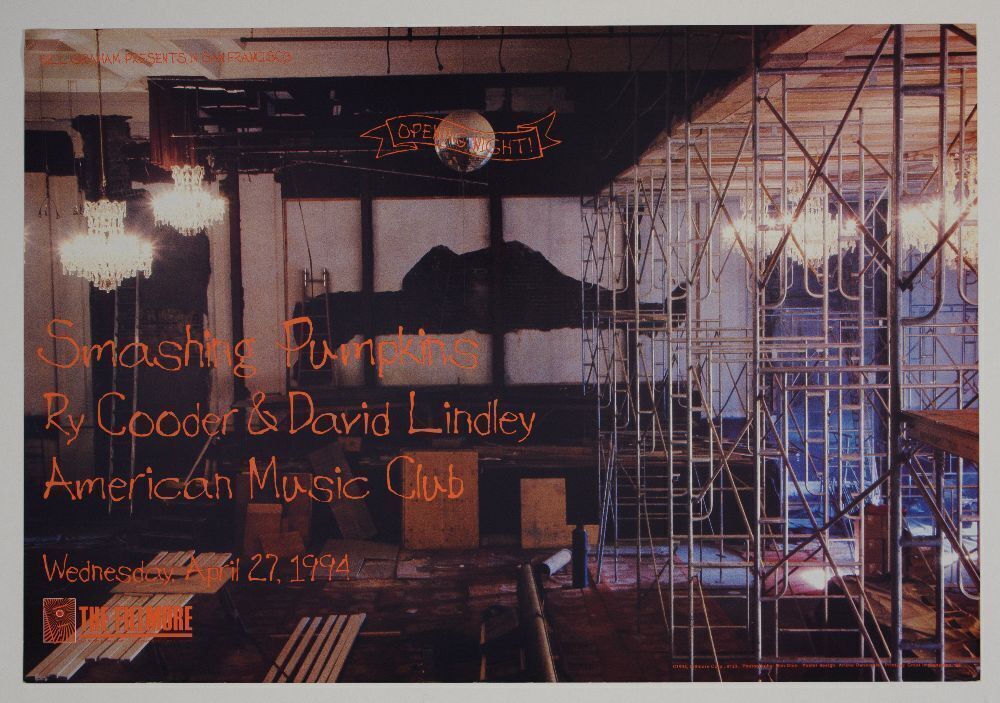 BILL GRAHAM PRESENTS IN SAN FRANCISCO
OPENING NIGHT!
Smashing Pumpkins
Ry Cooder & David Lindley
American Music Club
Wednesday, April 27, 1994
THE FILLMORE